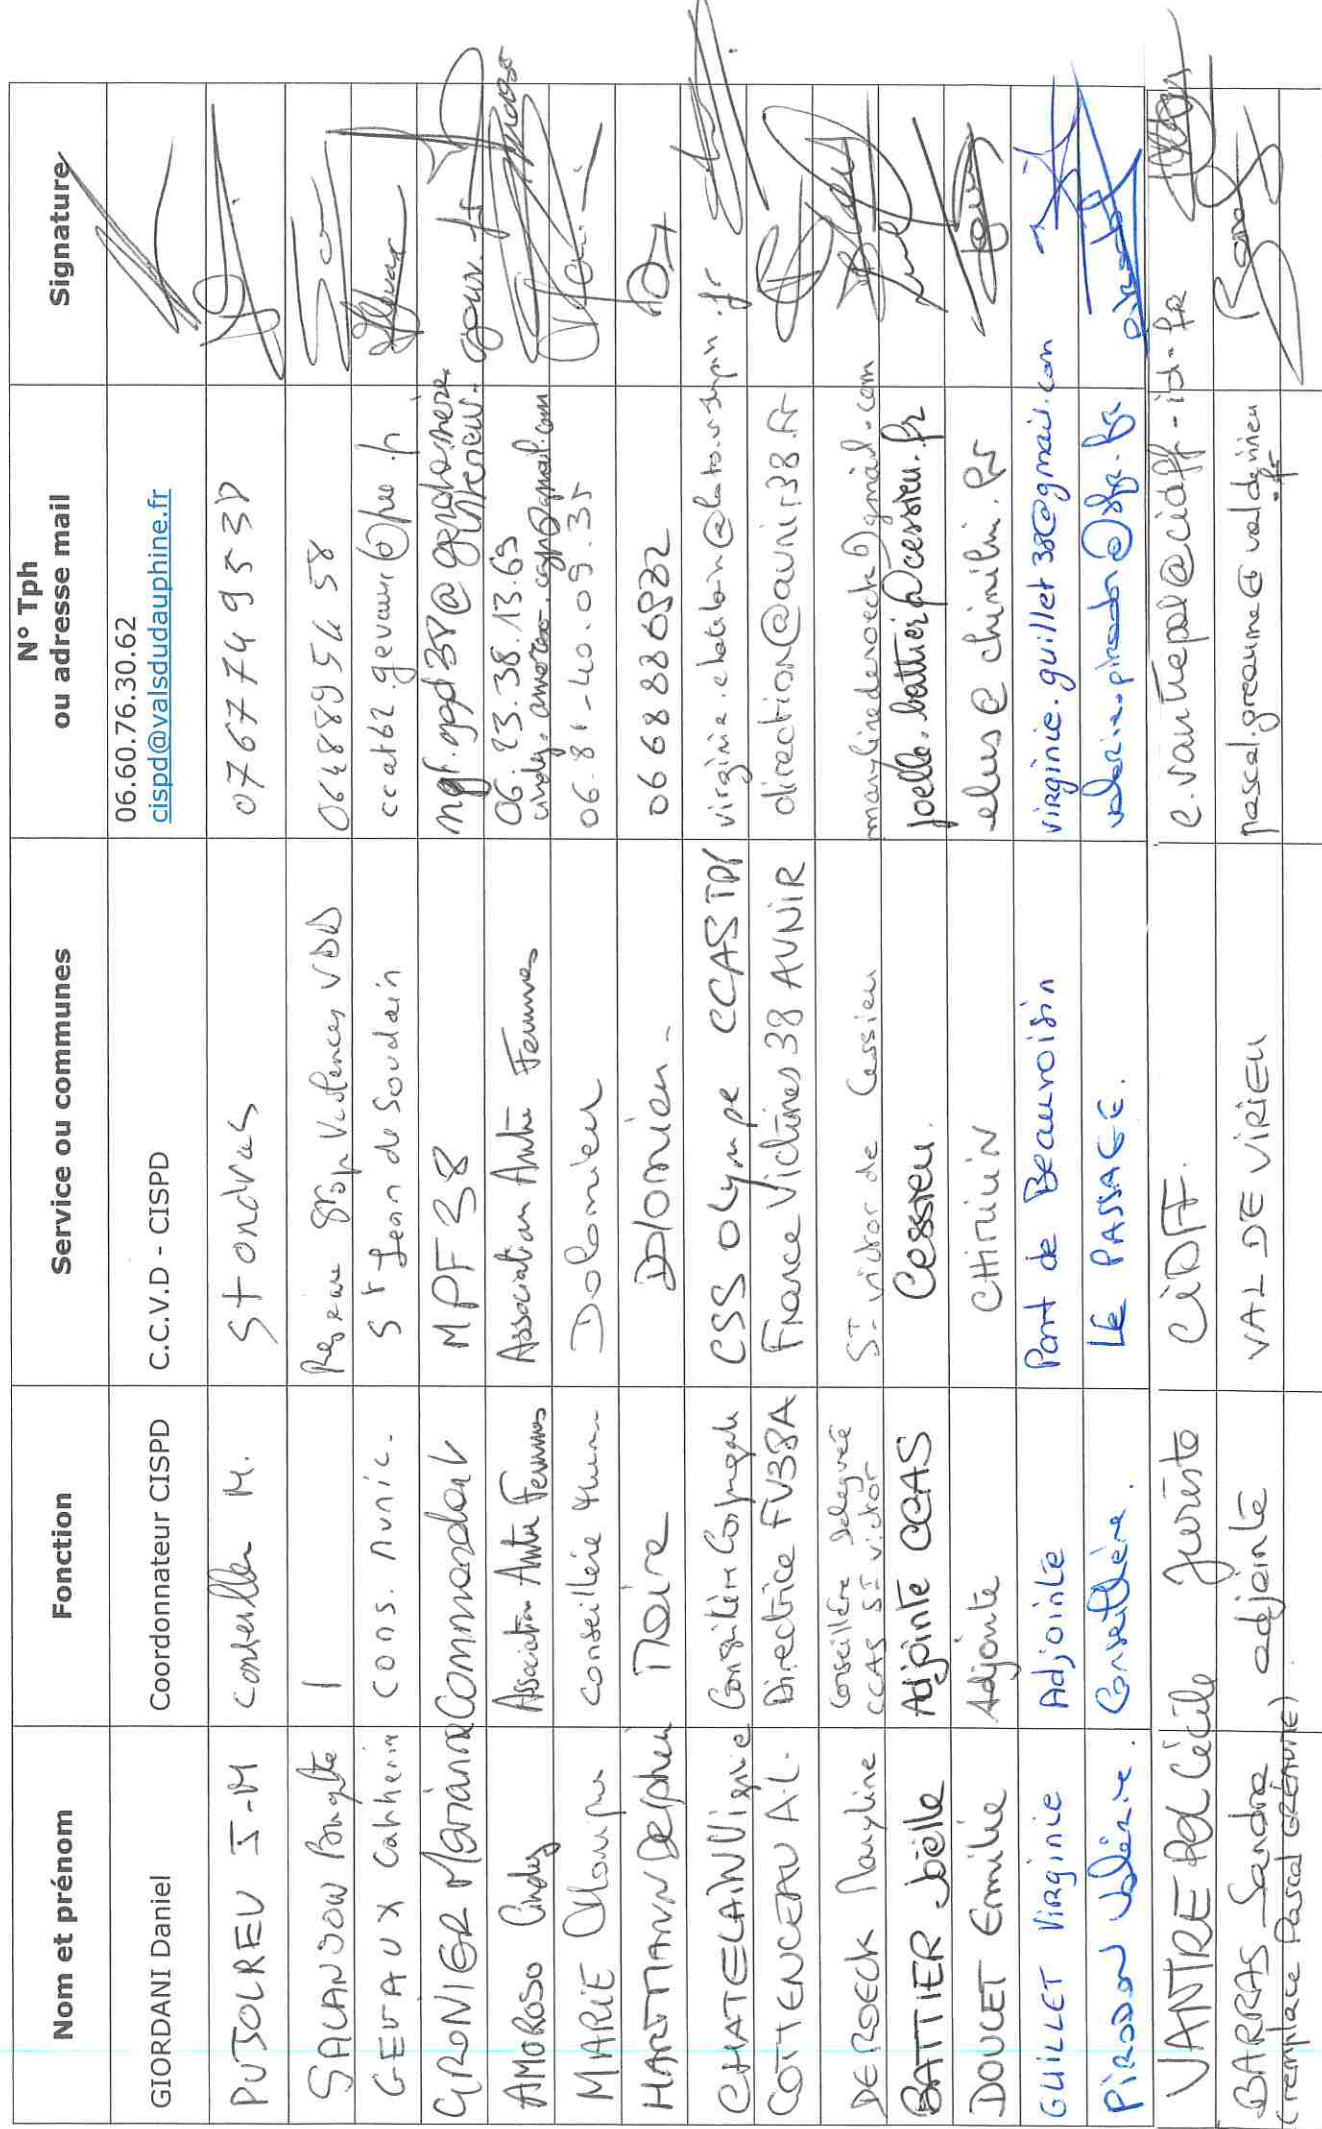 Nom et prénom Fonction Service ou communes N° Tph ou adresse mail Signature
GIORDANI Daniel Coordonnateur CISPD C.C.V.D - CISPD 06.60.76.30.62
cispd@valsdudauphine.fr
PUJOLREU J-M Conseiller M. St ondras 0767749530
SALANSON / Réseau grop Violences VDD 0648895458
GEVAUX Catherin Cons. Munic. St Jean de Soudain
GRONIER Marianne Commandant MPF 38
gouv.fr
AMOROSO Cindy Association Antre Femmes Association Antre Femmes 06.23.38.13.69
cindy.amoroso.
MARIE Conseillère Dolomieu 06-81-40.09.35
HARTMANN Delphin Maire 0668886832
CHATELAIN Virginie Conseillère Conjugale CSS Olympe CCAS TDP virginie.chatelain@latourdupin.fr
COTTENCEAU A-L. Directrice FV38A France Victimes 38 AVNIR direction@avnir38.fr
DEROECK Maryline Conseillère déléguée ST victor de Cessieu marylinederoeck@gmail.com
CCAS ST victor
BATTIER Joëlle Adjointe CCAS Cessieu. joelle.battier@cessieu.fr
DOUCET Emilie Adjointe CHIMILIN elus@chimilin.fr
GUILLET Virginie Adjointe Pont de Beauvoisin virginie.guillet38@gmail.com
PIRODON Valérie. Conseillère. LE PASSAGE. valerie.pirodon@sfr.fr
VANTREPOL Cécile Juriste CIDFF. c.vantrepol@cidff-id.fr
BARRAS Sandra adjointe VAL DE VIRIEU pascal.greaume@valdevirieu
.fr
(remplace Pascal GRÉAUME)